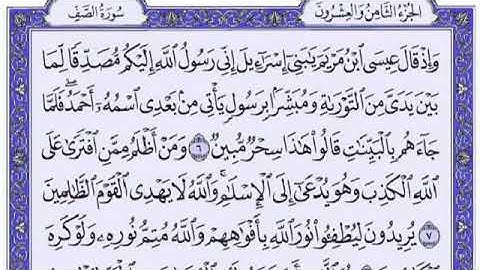 الجُزْءُ الثَّامِنُ وَالعِشْرُونَ
سُورَةُ الصَّفِّ
وَإِذْ قَالَ عِيسَى ٱبْنُ مَرْيَمَ يَٰبَنِىٓ إِسْرَٰٓءِيلَ إِنِّى رَسُولُ ٱللَّهِ إِلَيْكُم مُّصَدِّقًا لِّمَا
بَيْنَ يَدَىَّ مِنَ ٱلتَّوْرَىٰةِ وَمُبَشِّرًۢا بِرَسُولٍ يَأْتِى مِنۢ بَعْدِى ٱسْمُهُۥٓ أَحْمَدُ ۖ فَلَمَّا
جَآءَهُم بِٱلْبَيِّنَٰتِ قَالُوا۟ هَٰذَا سِحْرٌ مُّبِينٌ ٦ وَمَنْ أَظْلَمُ مِمَّنِ ٱفْتَرَىٰ عَلَى
ٱللَّهِ ٱلْكَذِبَ وَهُوَ يُدْعَىٰٓ إِلَى ٱلْإِسْلَٰمِ ۚ وَٱللَّهُ لَا يَهْدِى ٱلْقَوْمَ ٱلظَّٰلِمِينَ
٧ يُرِيدُونَ لِيُطْفِـُٔوا۟ نُورَ ٱللَّهِ بِأَفْوَٰهِهِمْ وَٱللَّهُ مُتِمُّ نُورِهِۦ وَلَوْ كَرِهَ